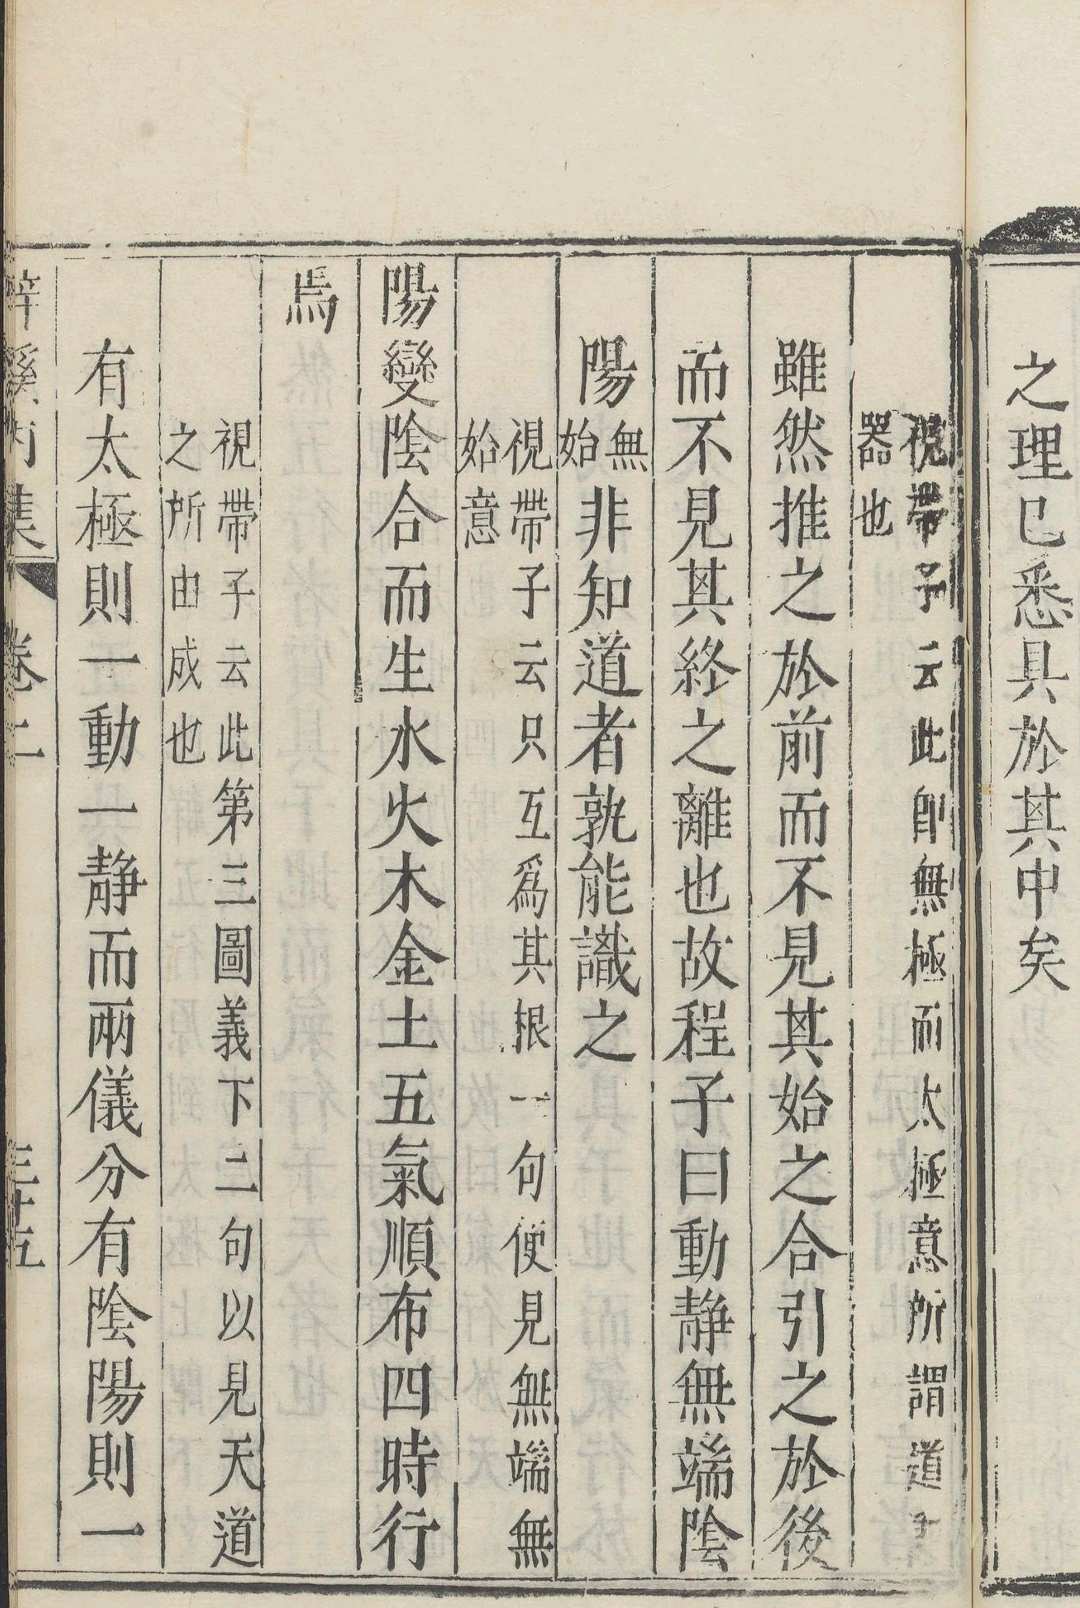 之理已悉具於其中矣
視帶子云此即無極而太極意所謂道
器也
雖然推之於前而不見其始之合引之於後
而不見其終之離也故程子曰動靜無端陰
陽無始非知道者孰能識之
視帶子云只互爲其根一句便見無端無
始意
陽變陰合而生水火木金土五氣順布四時行
焉
視帶子云此第三圖義下二句以見天道
之所由成也
有太極則一動一靜而兩儀分有陰陽則一
溪內集 卷二 三十五